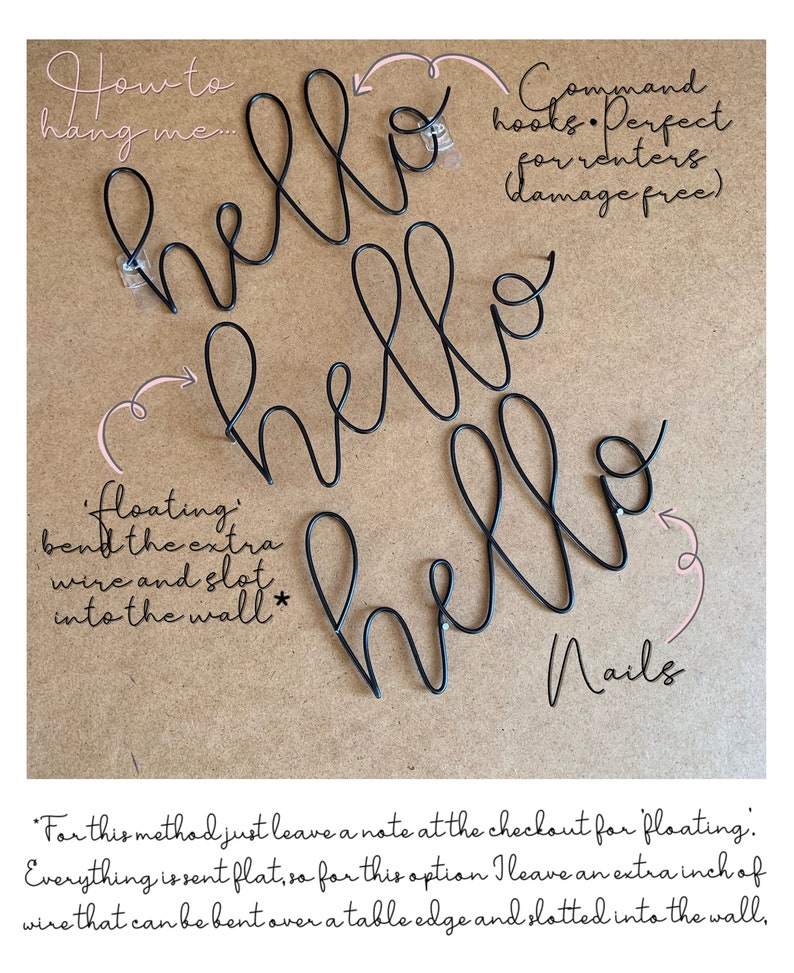 How to
hang me...
Command
hooks • Perfect
for renters
(damage free)
hello
hello
hello
'floating'
bend the extra
wire and slot
into the wall*
Nails
*For this method just leave a note at the checkout for 'floating'.
Everything is sent flat, so for this option I leave an extra inch of
wire that can be bent over a table edge and slotted into the wall.